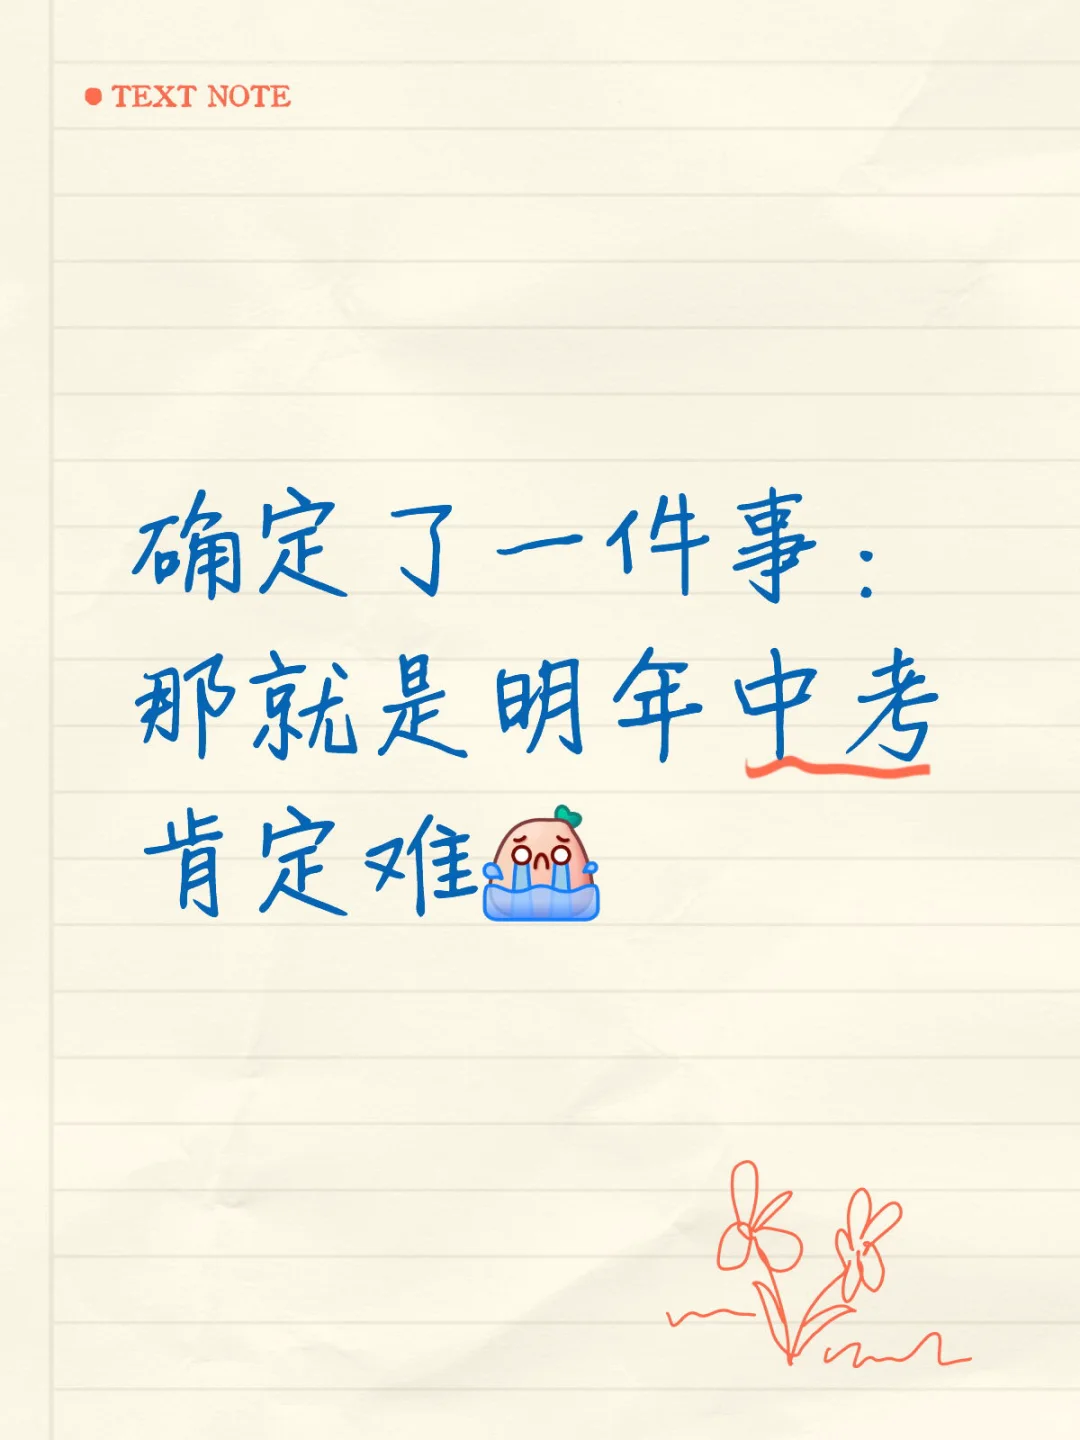 TEXT NOTE
确定了一件事：
那就是明年中考
肯定难